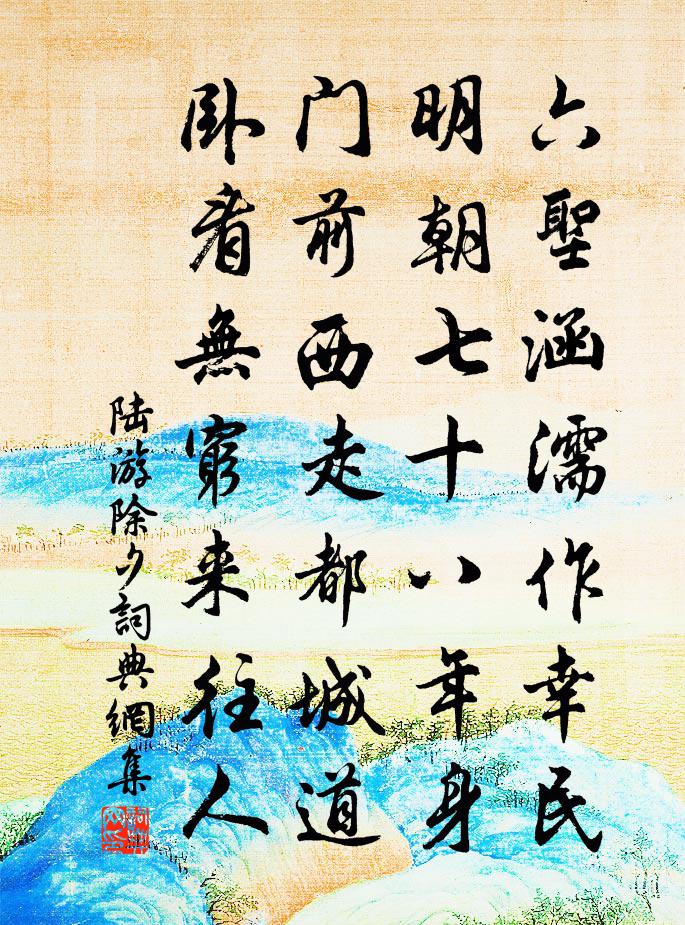 六聖涵濡作幸民
明朝七十八年身
门前西走都城道
卧看無窮来往人
陆游除夕詞典網集